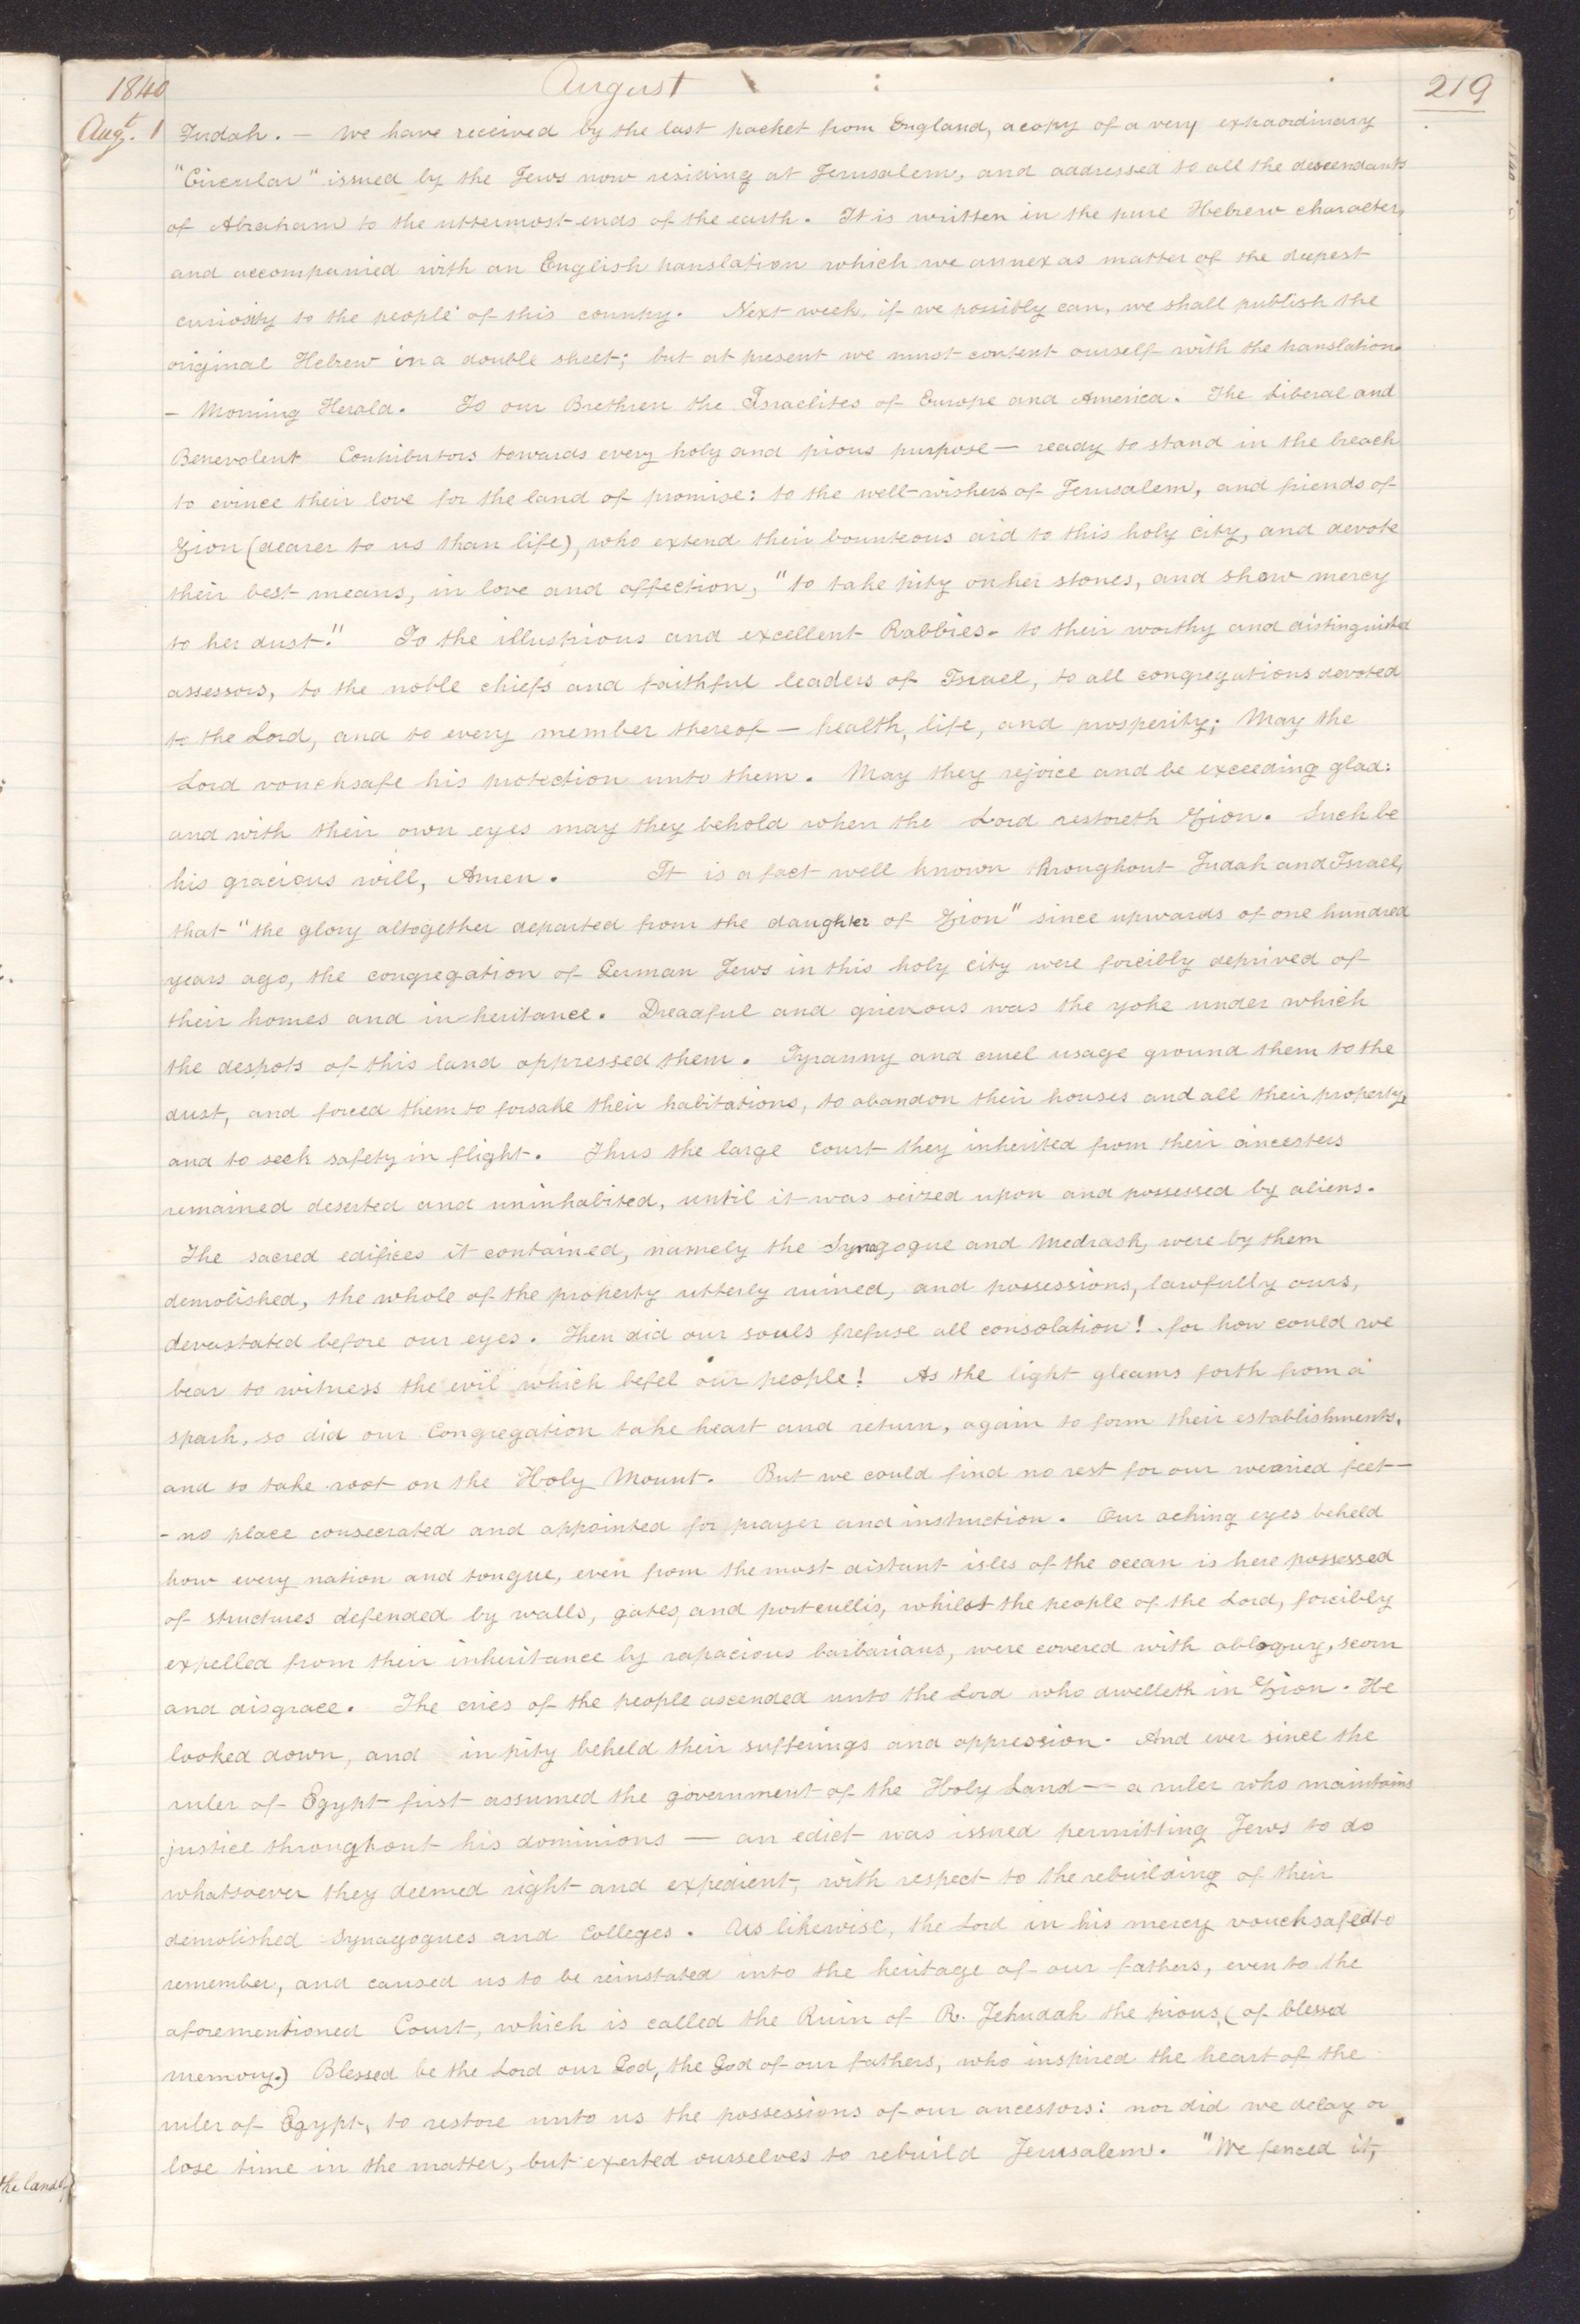 1840 August 219
Augt. 1 Judah. — We have received by the last packet from England, a copy of a very extraordinary
"Circular" issued by the Jews now residing at Jerusalem, and addressed to all the descendants
of Abraham to the uttermost ends of the earth. It is written in the pure Hebrew character,
and accompanied with an English translation which we annex as matter of the deepest
curiosity to the people of this country. Next week, if we possibly can, we shall publish the
original Hebrew in a double sheet; but at present we must content ourself with the translation.
– Morning Herald. To our Brethren the Israelites of Europe and America. The Liberal and
Benevolent Contributors towards every holy and pious purpose — ready to stand in the breach
to evince their love for the land of promise: to the well-wishers of Jerusalem, and friends of
Zion (dearer to us than life), who extend their bounteous aid to this holy city, and devote
their best means, in love and affection, "to take pity on her stones, and show mercy
to her dust." To the illustrious and excellent Rabbies. to their worthy and distinguished
assessors, to the noble chiefs and faithful leaders of Israel, to all congregations devoted
to the Lord, and to every member thereof — health, life, and prosperity; May the
Lord vouchsafe his protection unto them. May they rejoice and be exceeding glad:
and with their own eyes may they behold when the Lord restoreth Zion. Such be
his gracious will, Amen. It is a fact well known throughout Judah and Israel,
that "the glory altogether departed from the daughter of Zion" since upwards of one hundred
years ago, the congregation of German Jews in this holy city were forcibly deprived of
their homes and inheritance. Dreadful and grievous was the yoke under which
the despots of this land oppressed them. Tyranny and cruel usage ground them to the
dust, and forced them to forsake their habitations, to abandon their houses and all their property,
and to seek safety in flight. Thus the large court they inherited from their ancesters
remained deserted and uninhabited, until it was seized upon and possessed by aliens.
The sacred edifices it contained, namely the Synagogue and Medrash, were by them
demolished, the whole of the property utterly ruined, and possessions, lawfully ours,
devastated before our eyes. Then did our souls refuse all consolation! for how could we
bear to witness the evil which befel our people! As the light gleams forth from a
spark, so did our Congregation take heart and return, again to form their establishments,
and to take root on the Holy Mount. But we could find no rest for our wearied feet —
- no place consecrated and appointed for prayer and instruction. Our aching eyes beheld
how every nation and tongue, even from the most distant isles of the ocean is here possessed
of structures defended by walls, gates, and portcullis, whilst the people of the Lord, forcibly
expelled from their inheritance by rapacious barbarians, were covered with obloquy, scorn
and disgrace. The cries of the people ascended unto the Lord who dwelleth in Zion. He
looked down, and in pity beheld their sufferings and oppression. And ever since the
ruler of Egypt first assumed the government of the Holy Land — a ruler who maintains
justice throughout his dominions — an edict was issued permitting Jews to do
whatsoever they deemed right and expedient, with respect to the rebuilding of their
demolished Synagogues and Colleges. Us likewise, the Lord in his mercy vouchsafed to
remember, and caused us to be reinstated into the heritage of our fathers, even to the
aforementioned Court, which is called the Ruin of R. Jehudah the pious, (of blessed
memory.) Blessed be the Lord our God, the God of our fathers, who inspired the heart of the
ruler of Egypt, to restore unto us the possessions of our ancestors: nor did we delay or
lose time in the matter, but exerted ourselves to rebuild Jerusalem. "We fenced it,